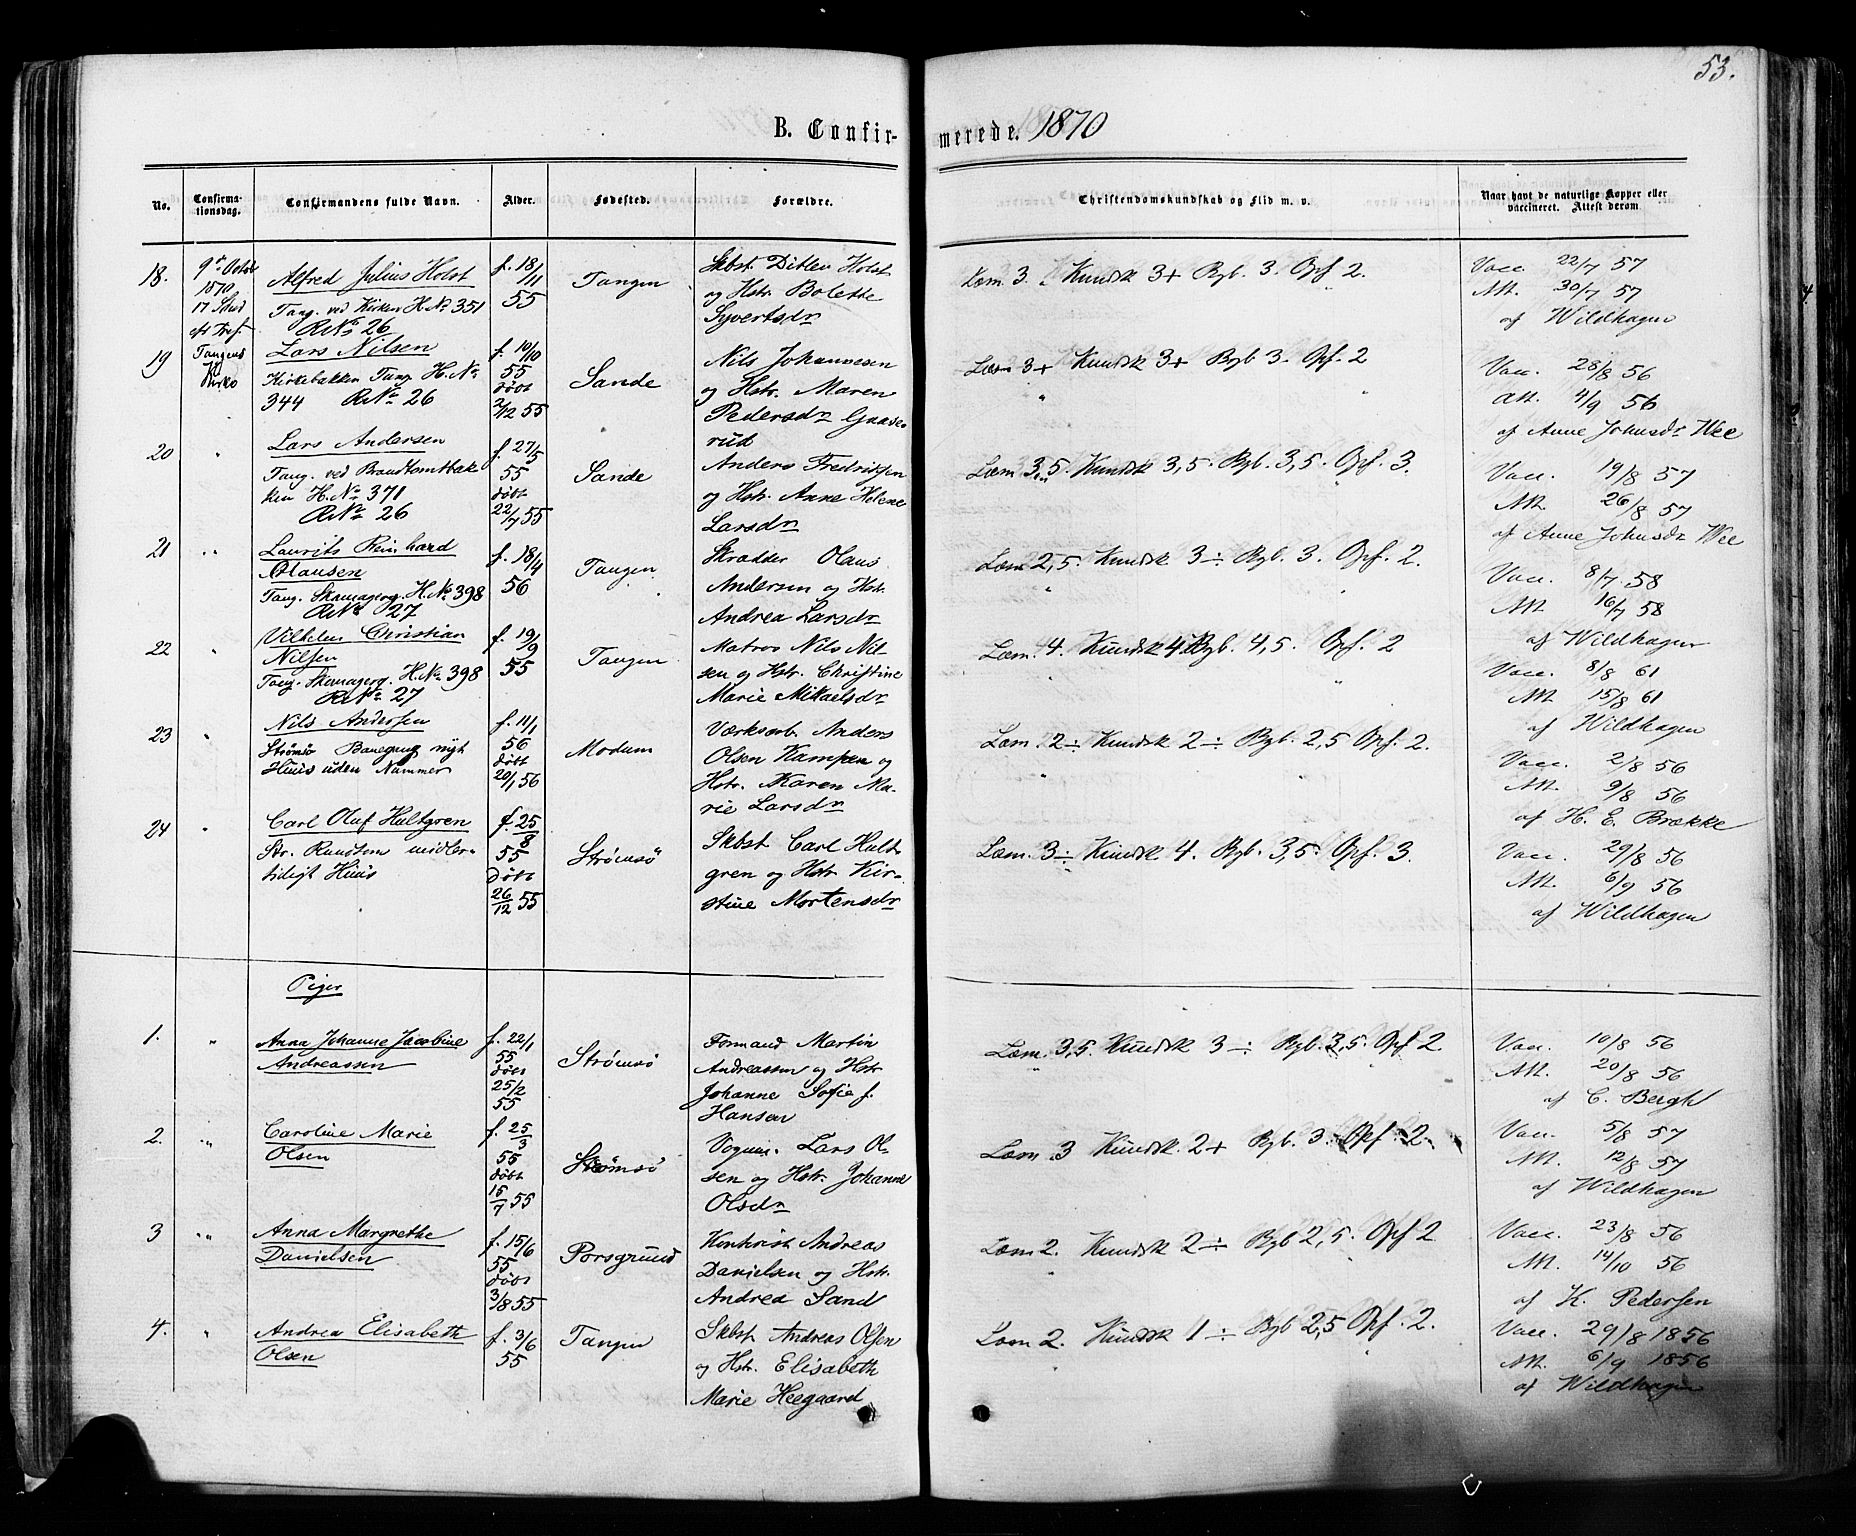 53.
B. Confirmerede. 1870
No.
Confirmationsdag.
Confirmandens fulde Navn.
Alder.
Fødested.
Forældre.
Christendomskundskab og Flid m. v.
Naar havt de naturlige Kopper eller vaccineret. Attest derom
18.
9de Octob
1870
17 Snd
eft Tref.
Tangens
Kirke
Alfred Julius Holst
Tang. ved Kirken H. No 351
R No 26
f. 18/11
55
Tangen
Skbst. Ditlev Holst
og Hstr. Bolette
Syvertsdr
Læm. 3. Kundsk 3+ Rgb. 3. Opf 2.
Vacc. 22/7 57
Att. 30/7 57
af Wildhagen
19
Lars Nilsen
Kirkebakken Tang. H. No
344 R No 26
f. 10/10
55
døbt
2/12 55
Sande
Nils Johannesen
og Hstr. Maren
Pedersdr Gaase-
rud
Læm 3+ Kundsk 3+ Rgb 3. Opf. 2
Vacc. 28/8 56
Att. 4/9 56
af Anne Johnsdr Wee
20
"
Lars Andersen
Tang. ved Brandtomtbak
ken H. No 371
R No 26
f. 27/5
55
døbt
22/7 55
Sande
Anders Fredriksen
og Hstr. Anne Helene
Larsdr
Læm. 3,5. Kundsk 3,5. Rgb. 3,5. Opf. 3.
Vacc. 19/8 57
Att. 26/8 57
af Anne Johnsdr Wee
21
"
Laurits Reinhard
Olausen
Tang. Skomagerg. H. No 398
R No 27
f. 18/4
56
Tangen
Skrædder Olaus
Andersen og Hstr.
Andrea Larsdr
Læm 2,5. Kundsk 3 ÷ Rgb. 3. Opf. 2.
Vacc. 8/7 58
Att 16/7 58
af Wildhagen
22
"
Vilhelm Christian
Nilsen
Tang. Skomagerg. H. No 398
R No 27
f. 19/9
55
Tangen
Matros Nils Nil
sen og Hstr. Christine
Marie Mikaelsdr
Læm. 4. Kundsk 4 Rgb. 4,5. Opf. 2
Vacc. 8/8 61
Att. 15/8 61
af Wildhagen
23
"
Nils Andersen
Strømsø Banegang nyt
Huus uden Nummer
f. 11/1
56
døbt
20/1 56
Modum
Værksarb. Anders
Olsen Kampen og
Hstr. Karen Ma-
rie Larsdr
Læm. 2 ÷ Kundsk 2 ÷ Rgb. 2,5 Opf. 2.
Vacc. 2/8 56
Att. 9/8 56
af H. E. Brække
24
"
Carl Oluf Hultgren
Str. Rundtom midler-
tidigt Huus
f. 25/8
55
døbt
26/12 55
Strømsø
Skbst Carl Hult-
gren og Hstr. Kir-
stine Mortensdr
Læm. 3 ÷ Kundsk 4. Rgb. 3,5. Opf. 3.
Vacc. 29/8 56
Att. 6/9 56
af Wildhagen
Piger
1.
"
Anna Johanne Jacobine
Andreassen
f. 22/1
55
døbt
25/2
55
Strømsø
Formand Martin
Andreassen og Hstr
Johanne Sofie f.
Hansen
Læm. 3,5. Kundsk 3 ÷ Rgb. 3,5. Opf 2.
Vacc. 10/8 56
Att. 20/8 56
af C. Bergh
2.
"
Caroline Marie
Olsen
f. 25/3
55
døbt
15/7 55
Strømsø
Vognm. Lars Ol-
sen og Hstr. Johanne
Olsdr
Læm. 3 Kundsk 2+ Rgb. 3. Opf. 2.
Vacc. 5/8 57
Att. 12/8 57
af Wildhagen
3
"
Anna Margrethe
Danielsen
f. 15/6
55
døbt
3/8 55
Porsgrund
Kontorist Andreas
Danielsen og Hstr.
Andrea Sand
Læm 2. Kundsk 2 ÷ Rgb 2,5. Opf 2
Vacc. 23/8 56
Att. 14/10 56
af K. Pedersen
4.
"
Andrea Elisabeth
Olsen
f. 3/6
55
Tangen
Skbst Andreas Olsen
og Hstr. Elisabeth
Marie Heegaard
Læm 2. Kundsk 1 ÷ Rgb 2,5 Opf. 2.
Vacc. 29/8 1856
Att. 6/9 1856
af Wildhagen